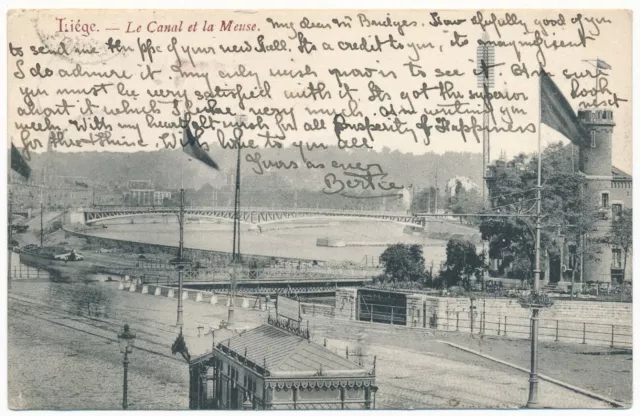 Liége. — Le Canal et la Meuse.
My dear Mr Bridges. How awfully good of you
to send me the ppc of your new Hall. Its a credit to you, its magnificent
I do admire it. My only wish now is to see it. I'm sure
you must be very satisfied with it. Its got the superior look
about it which I like very much. Am writing you next
week. With my heartfelt wish for all prosperity & Happiness
for the time. With love to you all
Yours as ever
Bertie